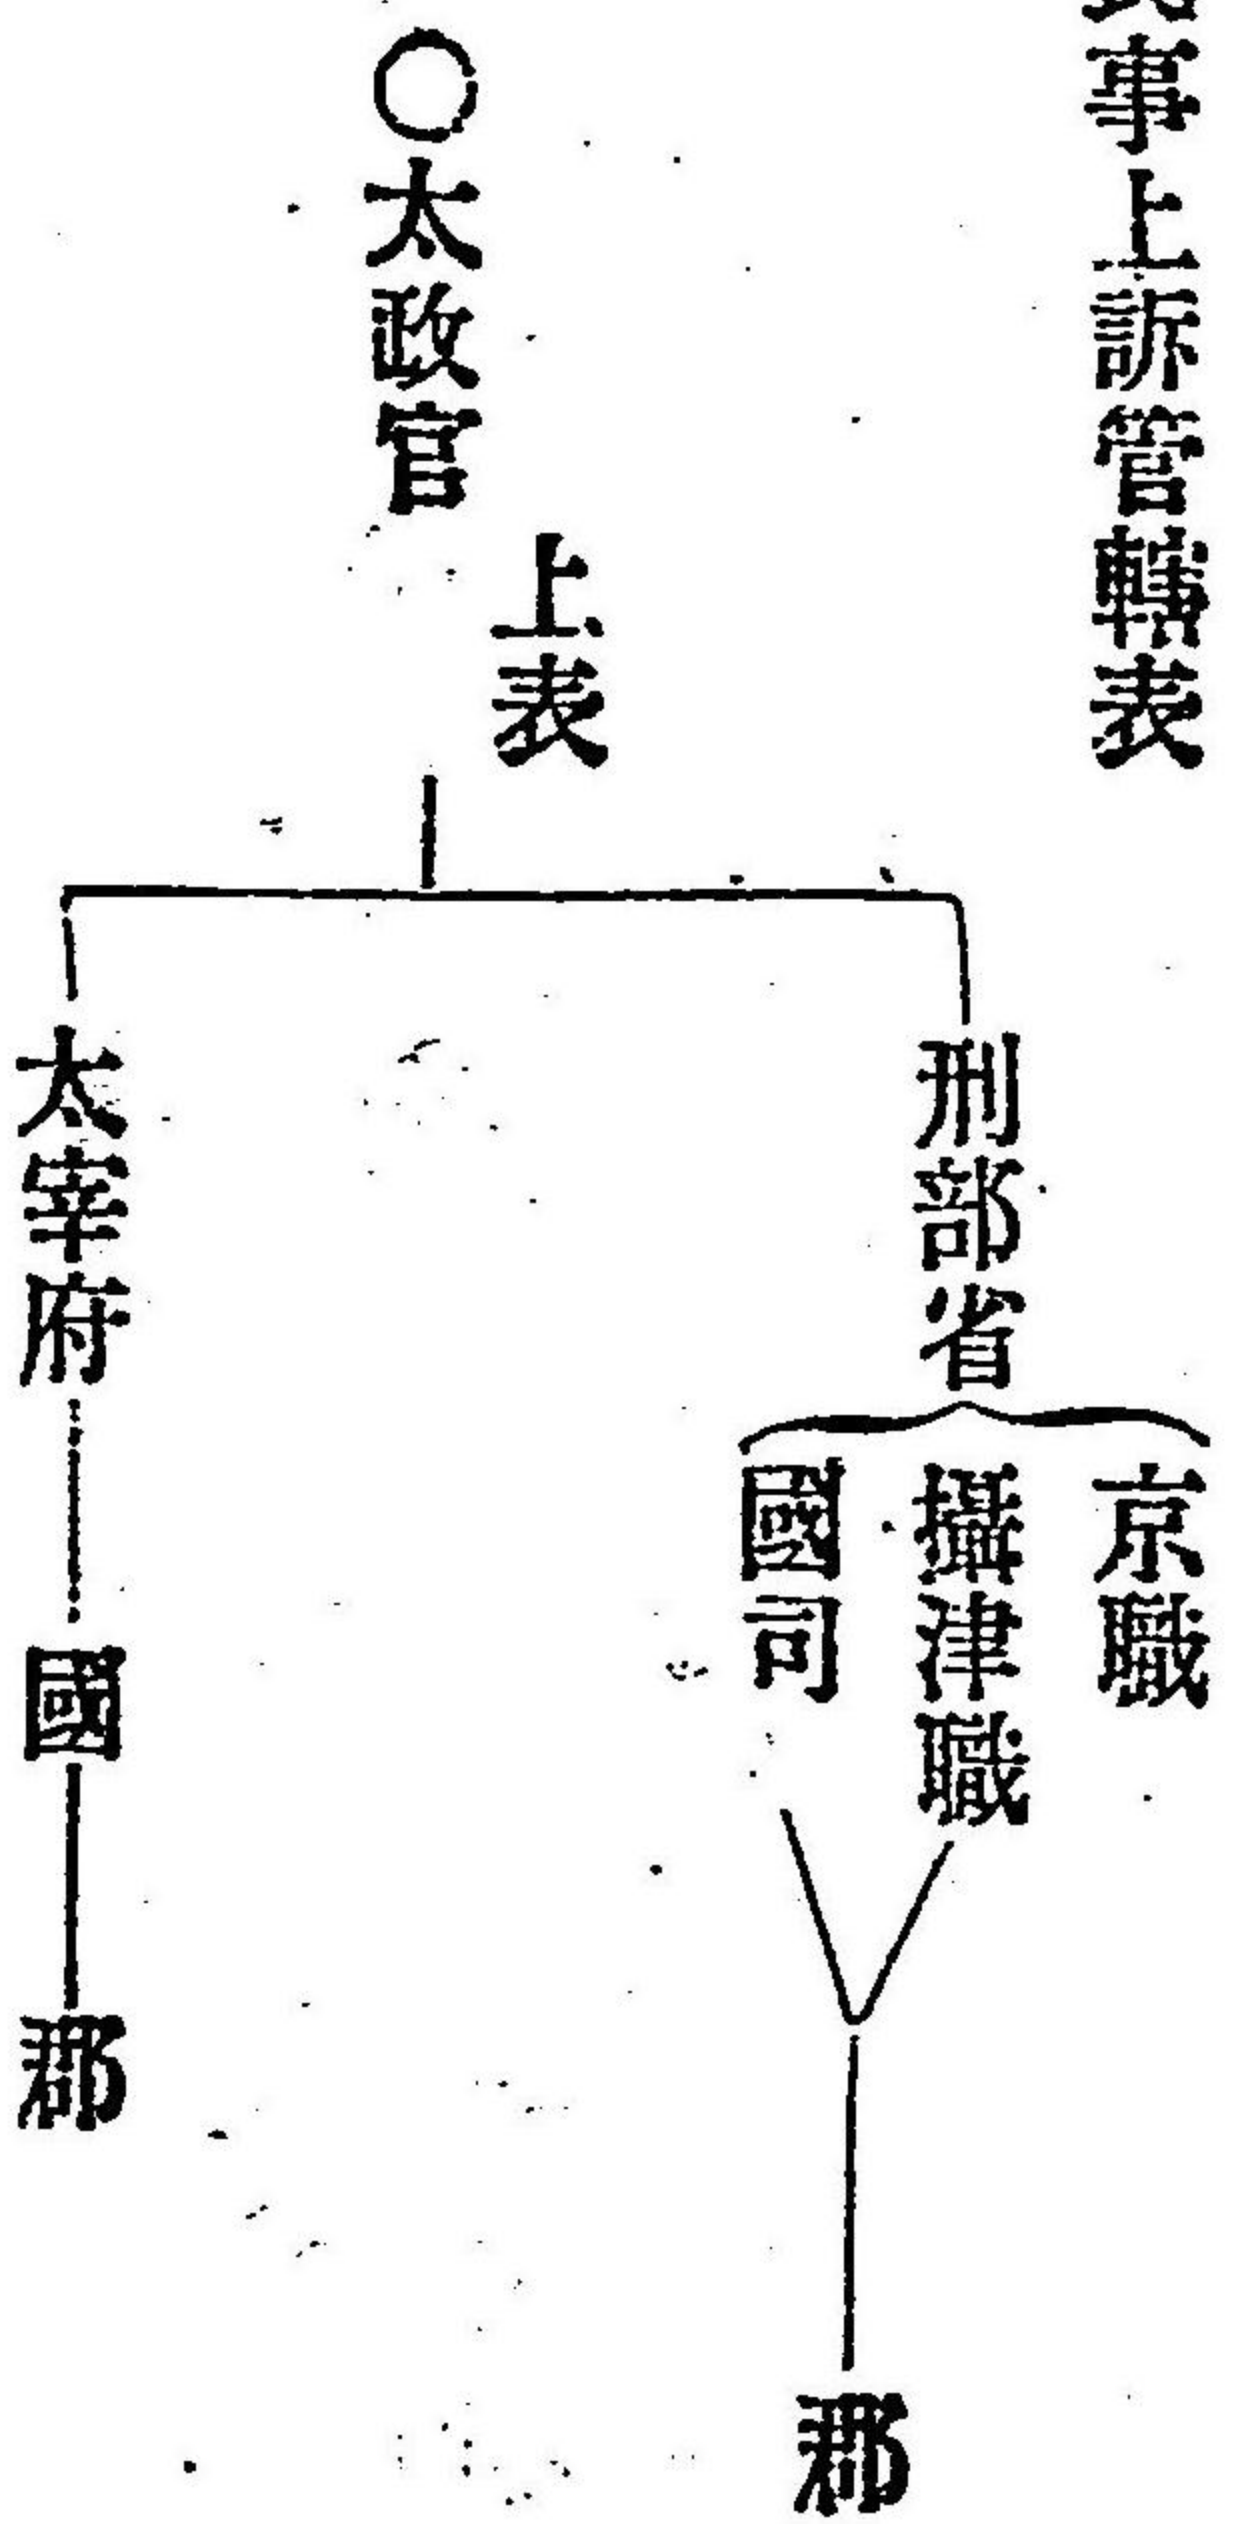 事上訴管轄表
上表
〇太政官
刑部省
京職
攝津職
國司
郡
太宰府
國
郡